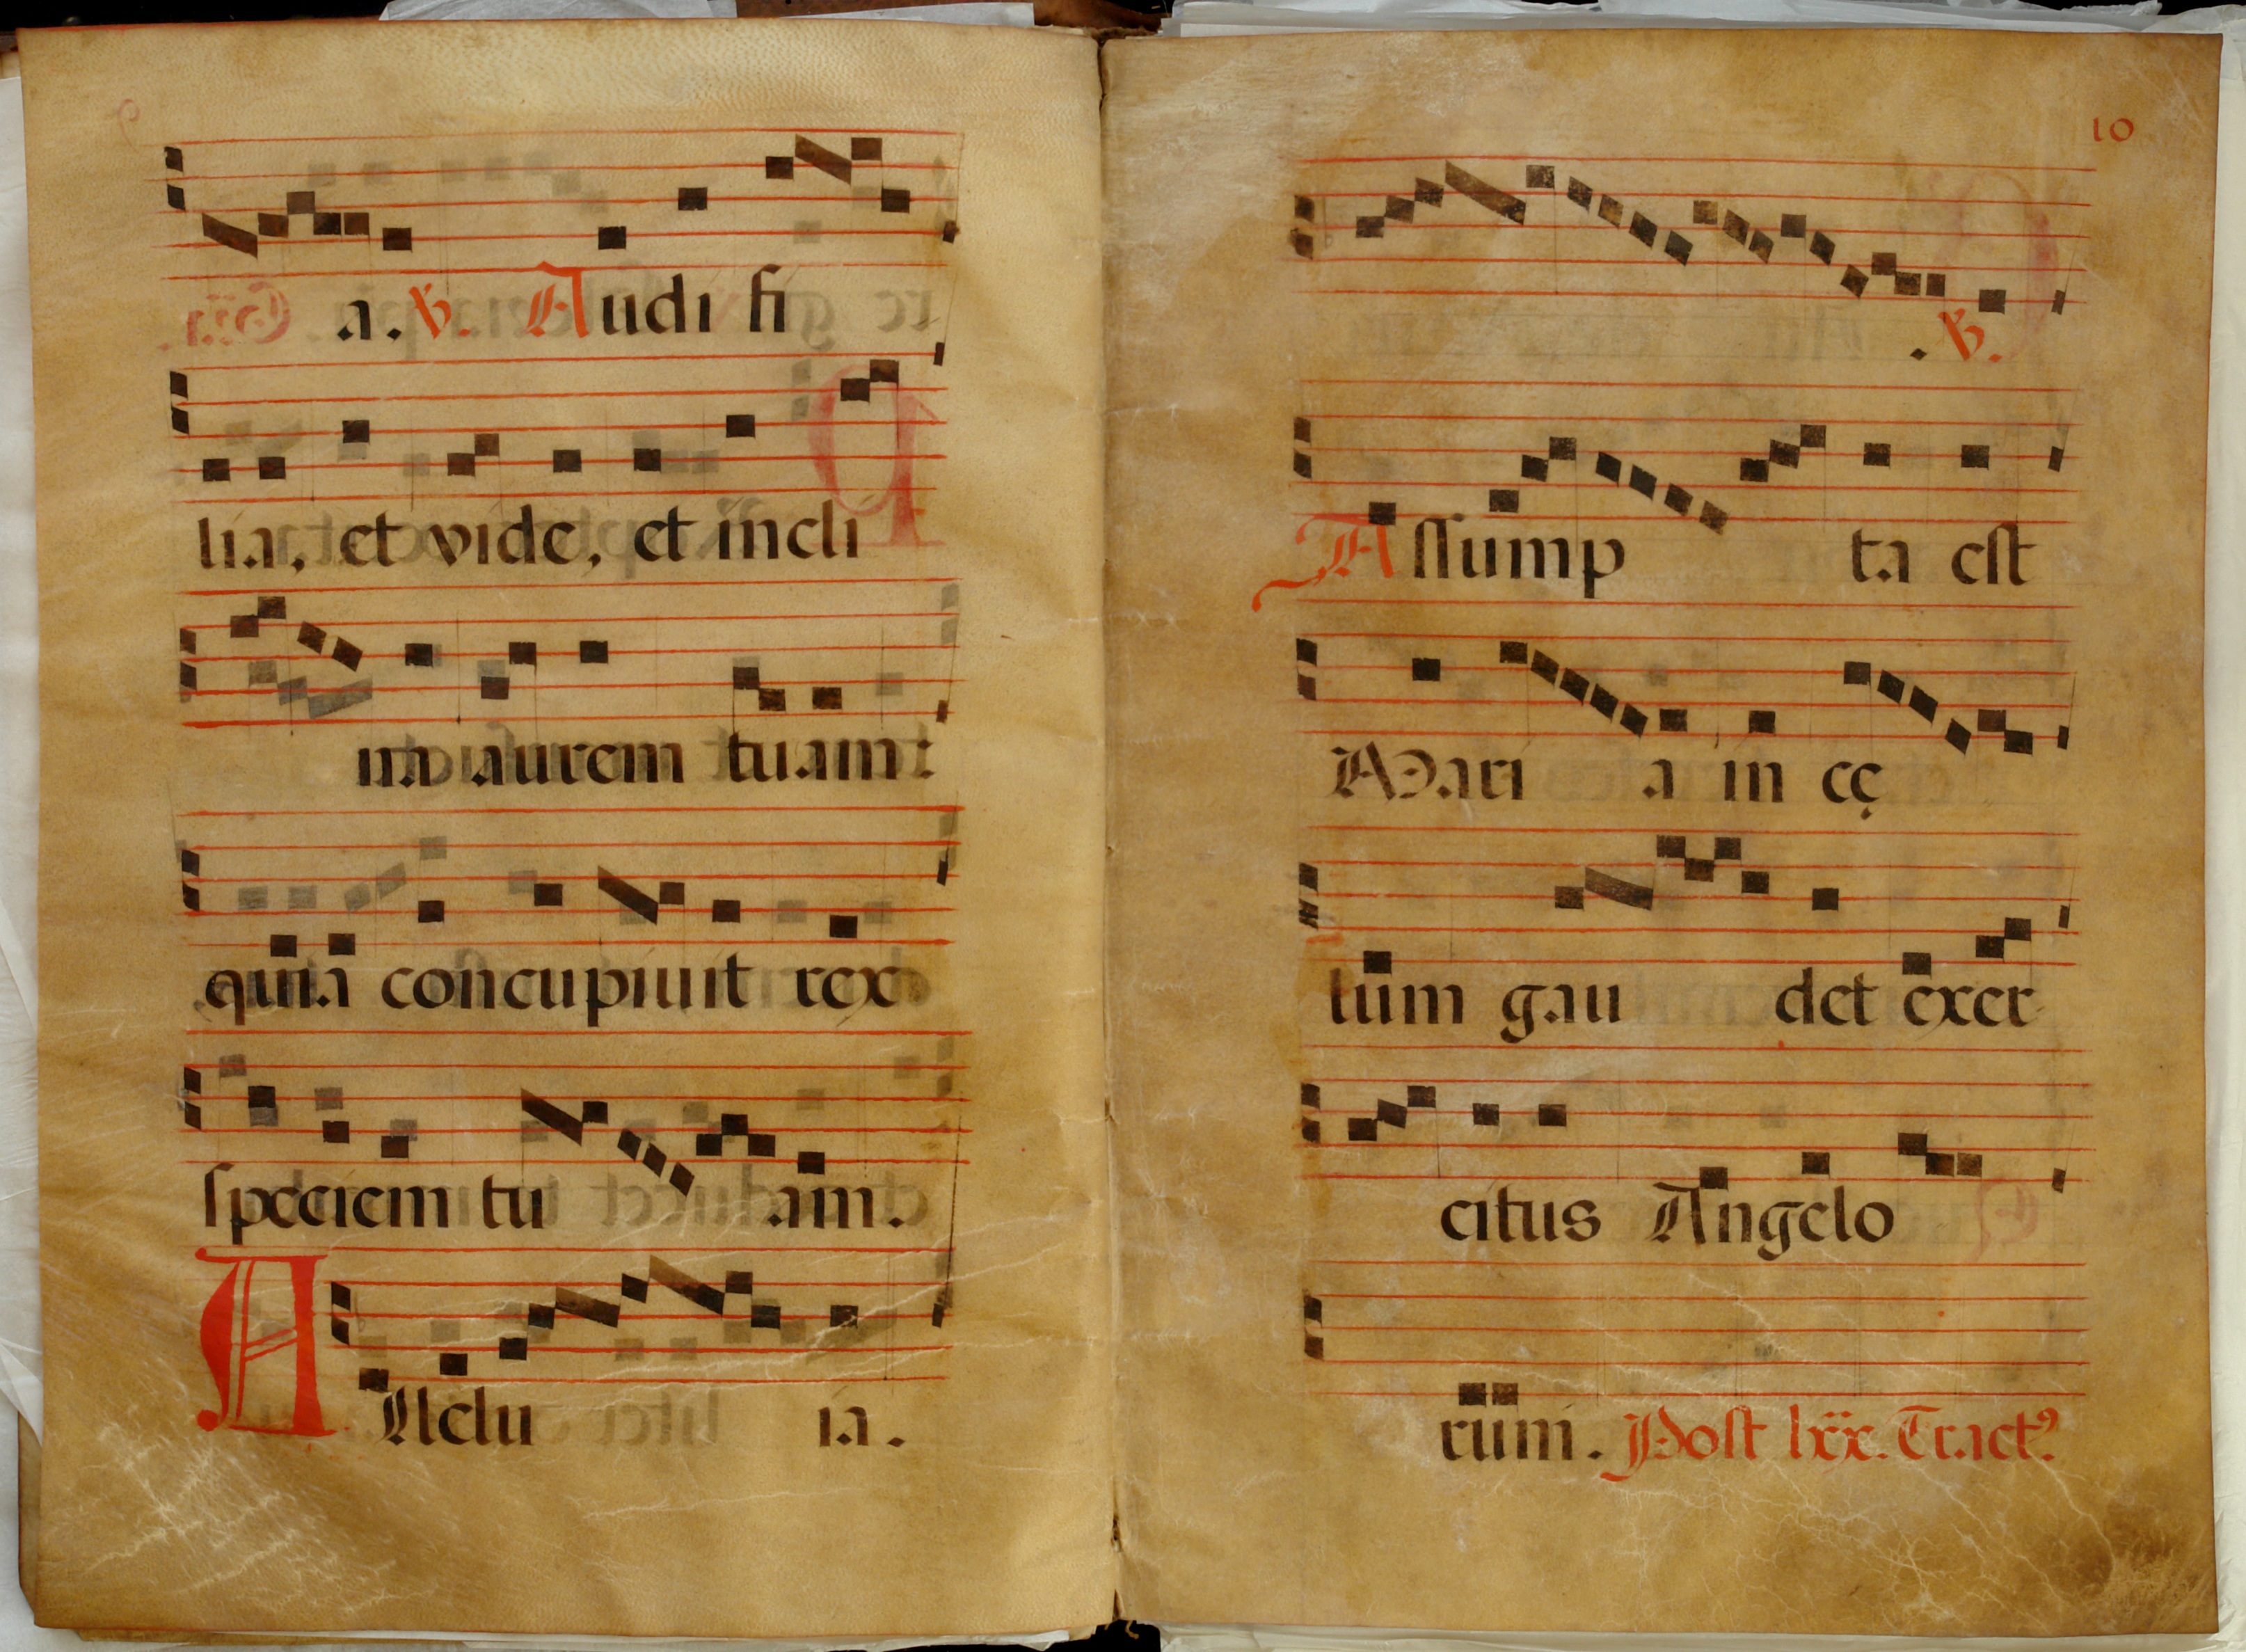 a. ℣. Audi fi
lia, et vide, et incli
na aurem tuam:
quia concupiuit rex
speciem tu am.
A Lleluia.
10
. ℣.
Assump ta est
Mari a in cę
lum gau det exer
citus Angelo
rum. Post lxx. Tract⁹